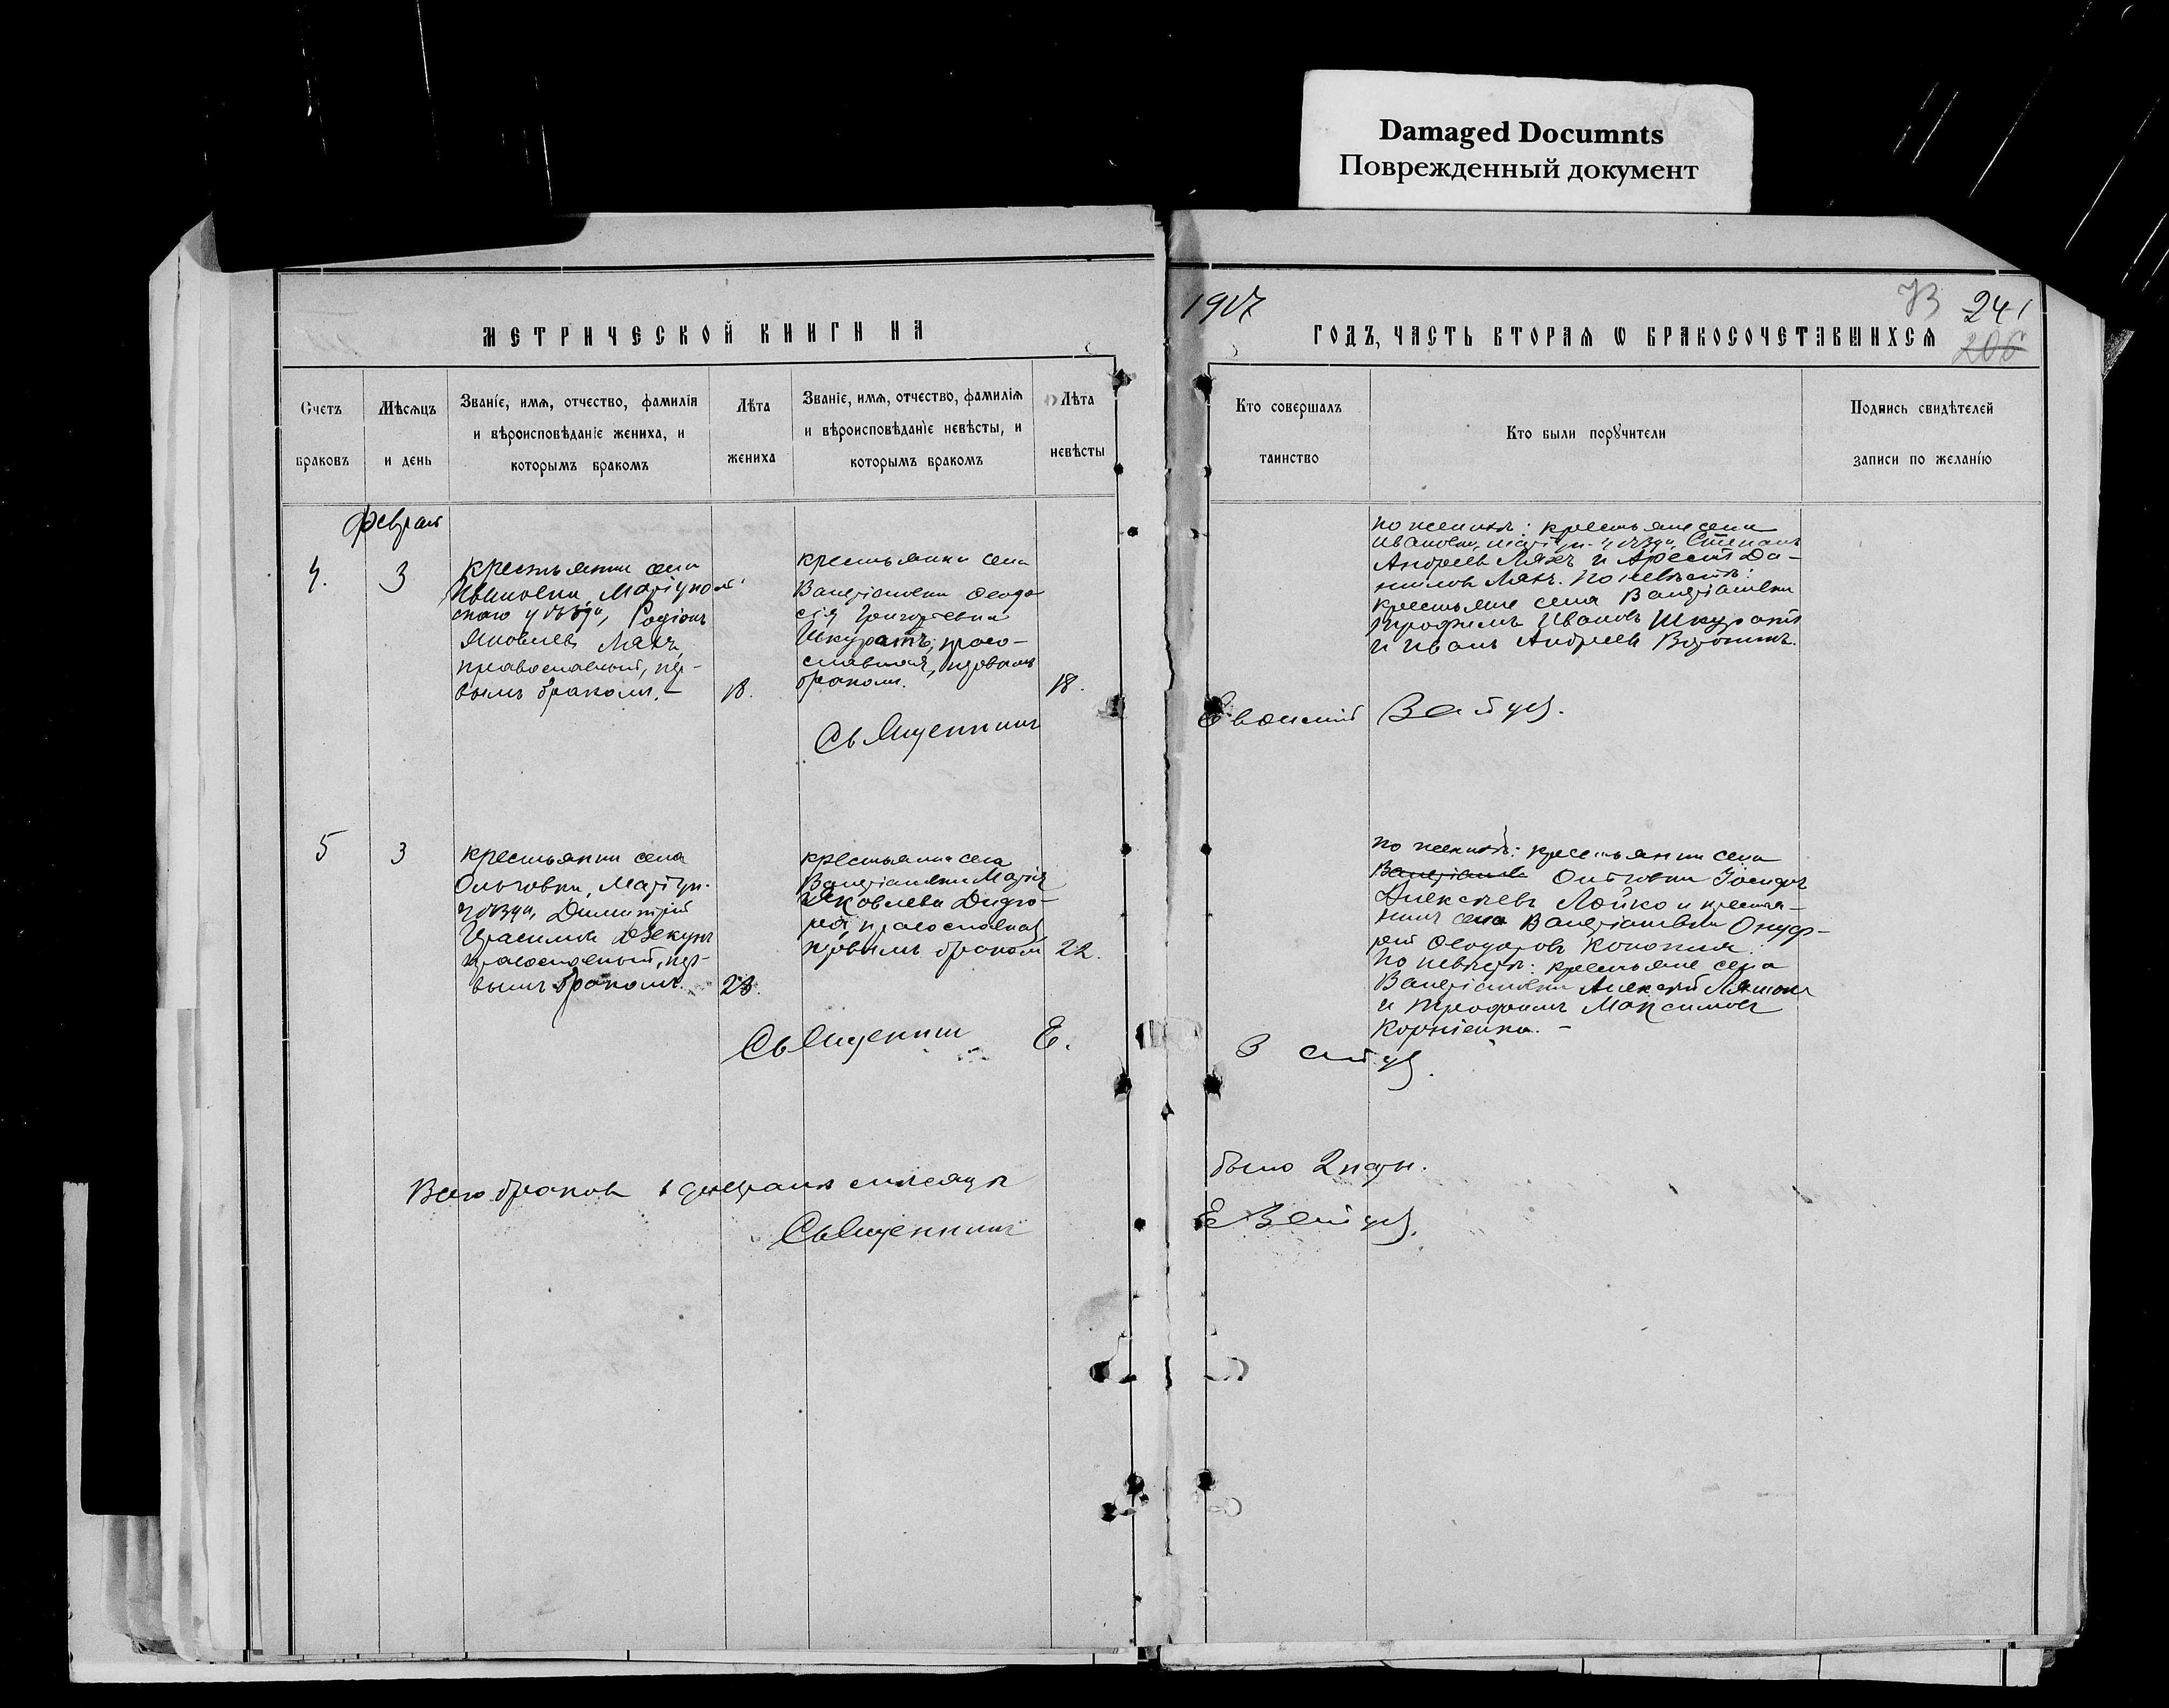 Damaged Documnts
Поврежденный документ
МЕТРИЧЕСКОЙ КНИГИ НА
1917
ГОДЪ, ЧАСТЬ ВТОРАЯ Ѡ БРАКОСОЧЕТАВШИХСЯ
73 241
206
Счетъ браковъ
Мѣсяцъ и день
Званіе, имя, отчество, фамилія
и вѣроисповѣданіе жениха, и
которымъ бракомъ
Лѣта жениха
Званіе, имя, отчество, фамилія
и вѣроисповѣданіе невѣсты, и
которымъ бракомъ
Лѣта невѣсты
Кто совершалъ таинство
Кто были поручители
Подпись свидѣтелей
записи по желанію
февраль
4.
3
крестьянин села
Ивановки, Маріупол
ского уѣзда, Родіонъ
Яковлевъ Ляхъ,
православный, пер-
вымъ бракомъ. –
18.
крестьянка села
Валеріановки Ѳеодо
сія Григорьевна
Шкуратъ, право-
славная, первымъ
бракомъ.
18.
Священникъ
по женихѣ: крестьяне села
Ивановки, Маріуп. уѣзда, Степанъ
Андреевъ Ляхъ и Арестъ Да-
ниловъ Ляхъ. По невѣстѣ:
крестьяне села Валеріановки
Трофимъ Ивановъ Шкуратъ
и Иванъ Андреевъ
Зайцевъ.
5
3
крестьянин села
Ольговки, Маріуп.
уѣзда, Димитрій
Герасимов
православный, пер-
вымъ бракомъ.
23.
крестьянка села
Валеріановки Марія
Яковлева
православная,
первымъ браком
22.
Священник Е.
Зайцев.
по женихѣ: крестьянин села
Ольговки Іосифъ
Алексѣевъ Лойко и крестья-
нинъ села Валеріановки Онуф-
рій Ѳеодоровъ
По невѣстѣ: крестьяне села
Валеріановки Алексѣй
и Трофимъ Максимовъ
Корніенко. –
Всего браков в февралѣ мѣсяцѣ
было 2
Священникъ
Е Зайцевъ.